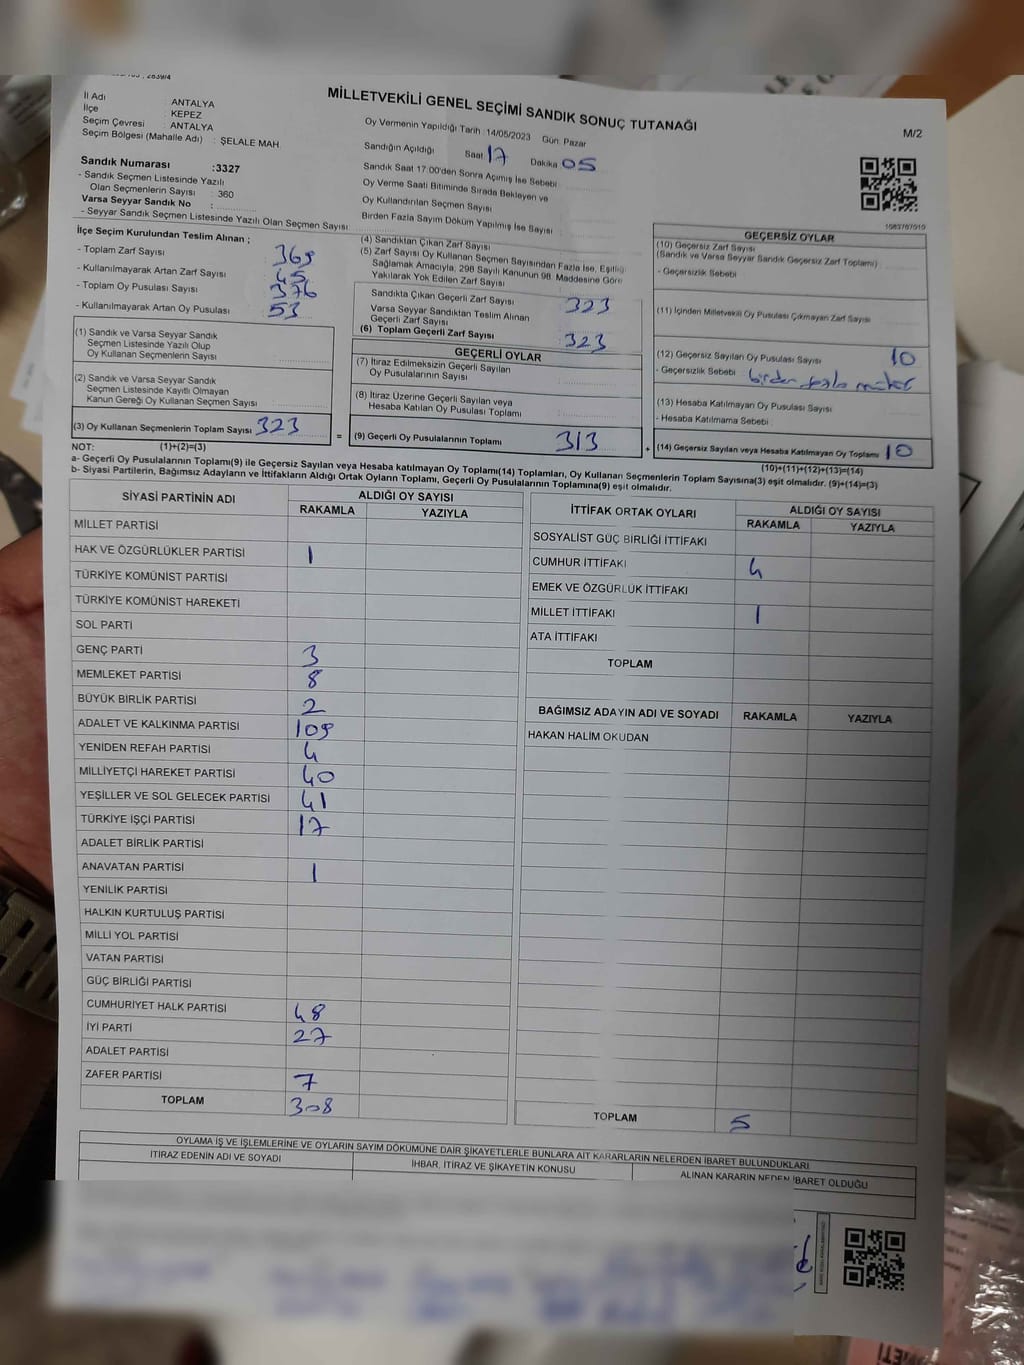 MİLLETVEKİLİ GENEL SEÇİMİ SANDIK SONUÇ TUTANAĞI
M/2
İl Adı : ANTALYA
İlçe : KEPEZ
Seçim Çevresi : ANTALYA
Seçim Bölgesi (Mahalle Adı) : ŞELALE MAH.
Oy Vermenin Yapıldığı Tarih : 14/05/2023 Gün: Pazar
Sandığın Açıldığı Saat 17 Dakika 05
Sandık Saat 17:00'den Sonra Açımış İse Sebebi
Oy Verme Saati Bitiminde Sırada Bekleyen ve
Oy Kullandırılan Seçmen Sayısı
Birden Fazla Sayım Döküm Yapılmış İse Sayısı
Sandık Numarası :3327
- Sandık Seçmen Listesinde Yazılı
Olan Seçmenlerin Sayısı : 360
Varsa Seyyar Sandık No :
- Seyyar Sandık Seçmen Listesinde Yazılı Olan Seçmen Sayısı
İlçe Seçim Kurulundan Teslim Alınan ;
- Toplam Zarf Sayısı 369
- Kullanılmayarak Artan Zarf Sayısı 45
- Toplam Oy Pusulası Sayısı 376
- Kullanılmayarak Artan Oy Pusulası 53
(1) Sandık ve Varsa Seyyar Sandık
Seçmen Listesinde Yazılı Olup
Oy Kullanan Seçmenlerin Sayısı
(2) Sandık ve Varsa Seyyar Sandık
Seçmen Listesinde Kayıtlı Olmayan
Kanun Gereği Oy Kullanan Seçmen Sayısı
(3) Oy Kullanan Seçmenlerin Toplam Sayısı 323
(4) Sandıktan Çıkan Zarf Sayısı
(5) Zarf Sayısı Oy Kullanan Seçmen Sayısından Fazla İse, Eşitliği
Sağlamak Amacıyla, 298 Sayılı Kanunun 98. Maddesine Göre
Yakılarak Yok Edilen Zarf Sayısı
Sandıkta Çıkan Geçerli Zarf Sayısı 323
Varsa Seyyar Sandıktan Teslim Alınan
Geçerli Zarf Sayısı
(6) Toplam Geçerli Zarf Sayısı 323
GEÇERLİ OYLAR
(7) İtiraz Edilmeksizin Geçerli Sayılan
Oy Pusulalarının Sayısı
(8) İtiraz Üzerine Geçerli Sayılan veya
Hesaba Katılan Oy Pusulası Toplamı
= (9) Geçerli Oy Pusulalarının Toplamı 313
1083787919
GEÇERSİZ OYLAR
(10) Geçersiz Zarf Sayısı
(Sandık ve Varsa Seyyar Sandık Geçersiz Zarf Toplamı)
- Geçersizlik Sebebi
(11) İçinden Milletvekili Oy Pusulası Çıkmayan Zarf Sayısı
(12) Geçersiz Sayılan Oy Pusulası Sayısı 10
- Geçersizlik Sebebi birden fazla mühür
(13) Hesaba Katılmayan Oy Pusulası Sayısı
- Hesaba Katılmama Sebebi
+ (14) Geçersiz Sayılan veya Hesaba Katılmayan Oy Toplamı 10
NOT: (1)+(2)=(3)
(10)+(11)+(12)+(13)=(14)
a- Geçerli Oy Pusulalarının Toplamı(9) ile Geçersiz Sayılan veya Hesaba katılmayan Oy Toplamı(14) Toplamları, Oy Kullanan Seçmenlerin Toplam Sayısına(3) eşit olmalıdır. (9)+(14)=(3)
b- Siyasi Partilerin, Bağımsız Adayların ve İttifakların Aldığı Ortak Oyların Toplamı, Geçerli Oy Pusulalarının Toplamına(9) eşit olmalıdır.
SİYASİ PARTİNİN ADI
ALDIĞI OY SAYISI
RAKAMLA YAZIYLA
MİLLET PARTİSİ
HAK VE ÖZGÜRLÜKLER PARTİSİ 1
TÜRKİYE KOMÜNİST PARTİSİ
TÜRKİYE KOMÜNİST HAREKETİ
SOL PARTİ
GENÇ PARTİ 3
MEMLEKET PARTİSİ 8
BÜYÜK BİRLİK PARTİSİ 2
ADALET VE KALKINMA PARTİSİ 109
YENİDEN REFAH PARTİSİ 4
MİLLİYETÇİ HAREKET PARTİSİ 40
YEŞİLLER VE SOL GELECEK PARTİSİ 41
TÜRKİYE İŞÇİ PARTİSİ 17
ADALET BİRLİK PARTİSİ
ANAVATAN PARTİSİ 1
YENİLİK PARTİSİ
HALKIN KURTULUŞ PARTİSİ
MİLLİ YOL PARTİSİ
VATAN PARTİSİ
GÜÇ BİRLİĞİ PARTİSİ
CUMHURİYET HALK PARTİSİ 48
İYİ PARTİ 27
ADALET PARTİSİ
ZAFER PARTİSİ 7
TOPLAM 308
İTTİFAK ORTAK OYLARI
ALDIĞI OY SAYISI
RAKAMLA YAZIYLA
SOSYALİST GÜÇ BİRLİĞİ İTTİFAKI
CUMHUR İTTİFAKI 4
EMEK VE ÖZGÜRLÜK İTTİFAKI
MİLLET İTTİFAKI 1
ATA İTTİFAKI
TOPLAM
BAĞIMSIZ ADAYIN ADI VE SOYADI RAKAMLA YAZIYLA
HAKAN HALİM OKUDAN
TOPLAM 5
OYLAMA İŞ VE İŞLEMLERİNE VE OYLARIN SAYIM DÖKÜMÜNE DAİR ŞİKAYETLERLE BUNLARA AİT KARARLARIN NELERDEN İBARET BULUNDUKLARI
İTİRAZ EDENİN ADI VE SOYADI
İHBAR, İTİRAZ VE ŞİKAYETİN KONUSU
ALINAN KARARIN NEDEN İBARET OLDUĞU